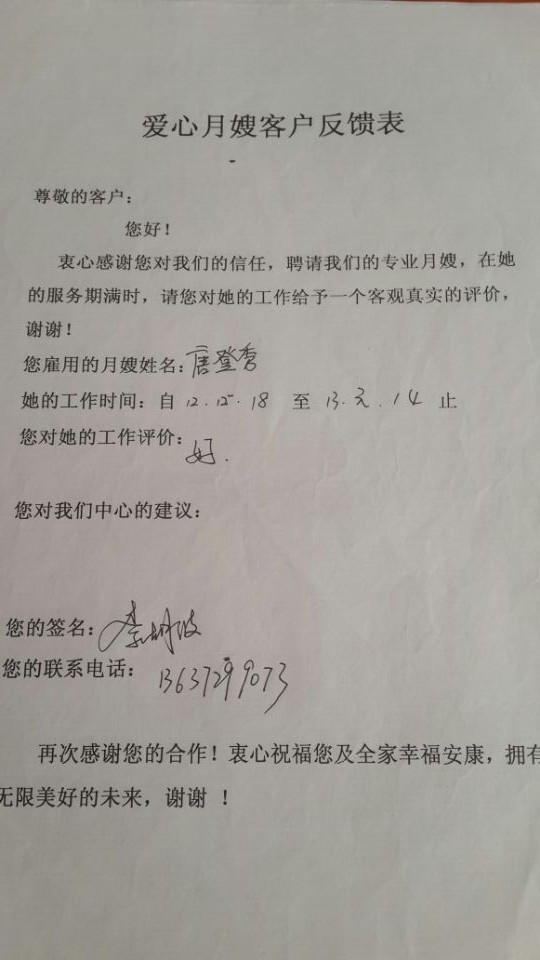 爱心月嫂客户反馈表
尊敬的客户：
您好！
衷心感谢您对我们的信任，聘请我们的专业月嫂，在她
的服务期满时，请您对她的工作给予一个客观真实的评价，
谢谢！
您雇用的月嫂姓名：唐登秀
她的工作时间：自 12.12.18 至 13.元.14 止
您对她的工作评价：好.
您对我们中心的建议：
您的签名：
您的联系电话：13637299073
再次感谢您的合作！衷心祝福您及全家幸福安康，拥有
无限美好的未来，谢谢 ！